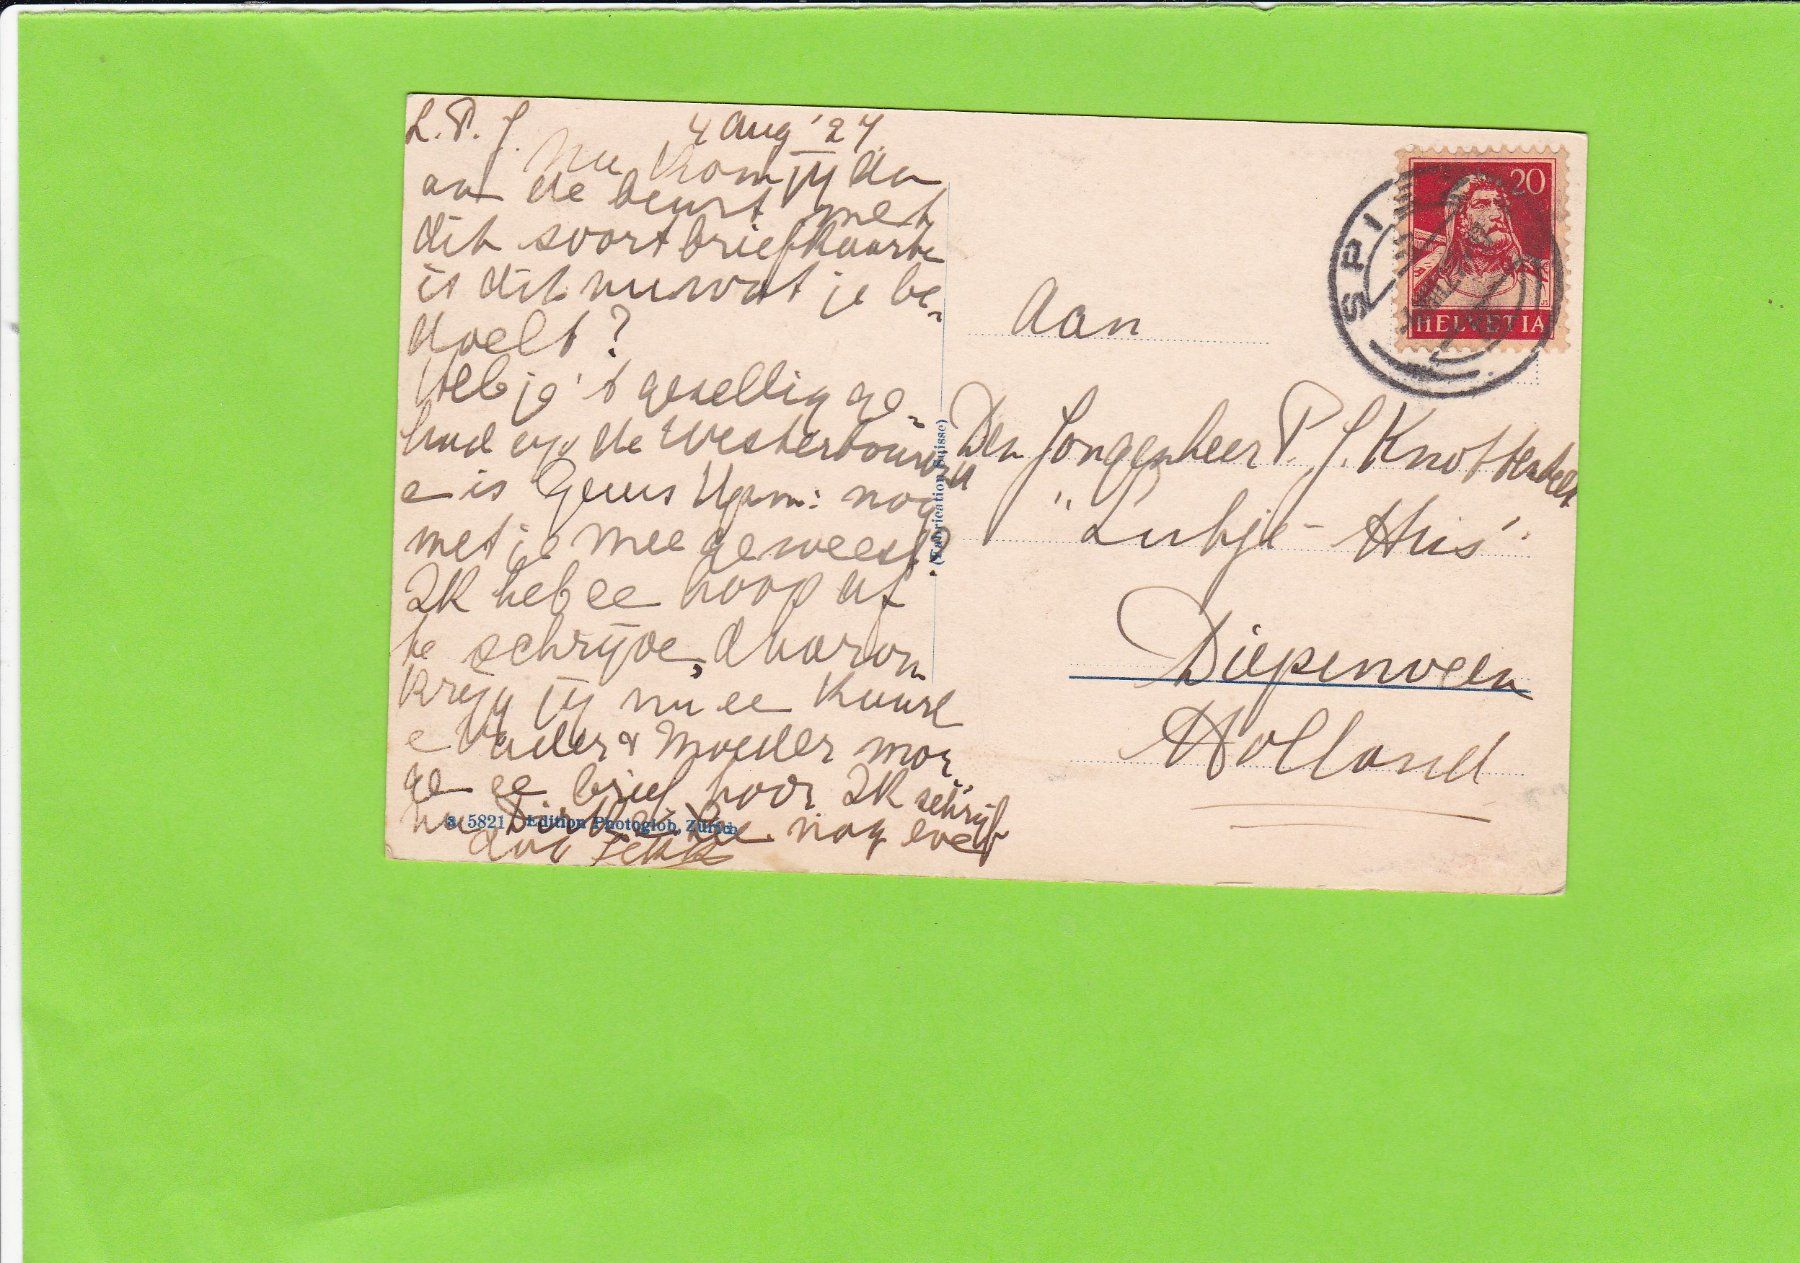 L. P. J. 4 Aug '27.
Nu kom jij dan
aan de beurt met
dit soort briefkaarte
is dit nu wat je be-
doelt?
Heb je 't gezellig ge-
had op de
e is Guus nog
met je mee geweest.
Ik heb ee hoop af
te schrijve, daarom
krijg jij nu ee kaart
e Vader & Moeder mor-
ge ee brief hoor Ik schrijf
nu nog even
dag
a 5821 Edition Photoglob, Zürich
(Fabrication Suisse)
SPI
20
HELVETIA
Aan
Den Jongenheer P. J. Knottenbelt
"Lubje-Huis"
Diepenveen
Holland